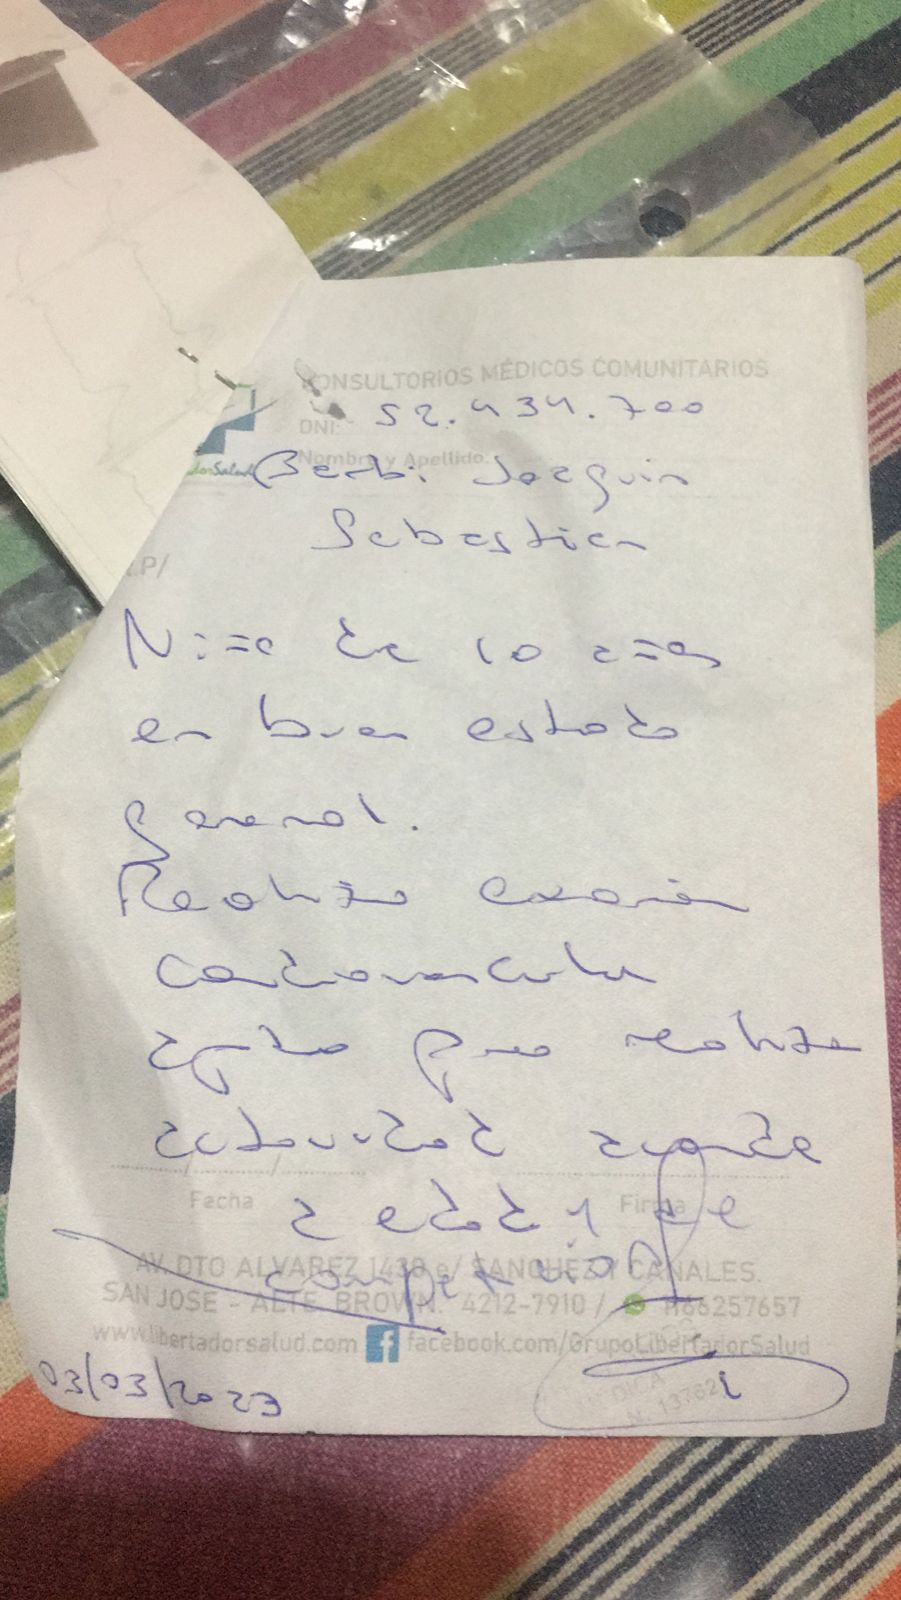 CONSULTORIOS MÉDICOS COMUNITARIOS
DNI: 52.434.700
Nombre y Apellido:
Berbi Joaquin
Sebastian
.P/
Niño de 10 años
en buen estado
general.
Realizo examen
cardiovascular
apto para realizar
actividad acorde
Fecha Firma
a edad y de
competición
AV. DTO ALVAREZ 1430 e/ SANCHEZ Y CANALES
SAN JOSE - ALTE. BROWN. 4212-7910 / 1166257657
www.libertadorsalud.com facebook.com/GrupoLibertadorSalud
03/03/2023